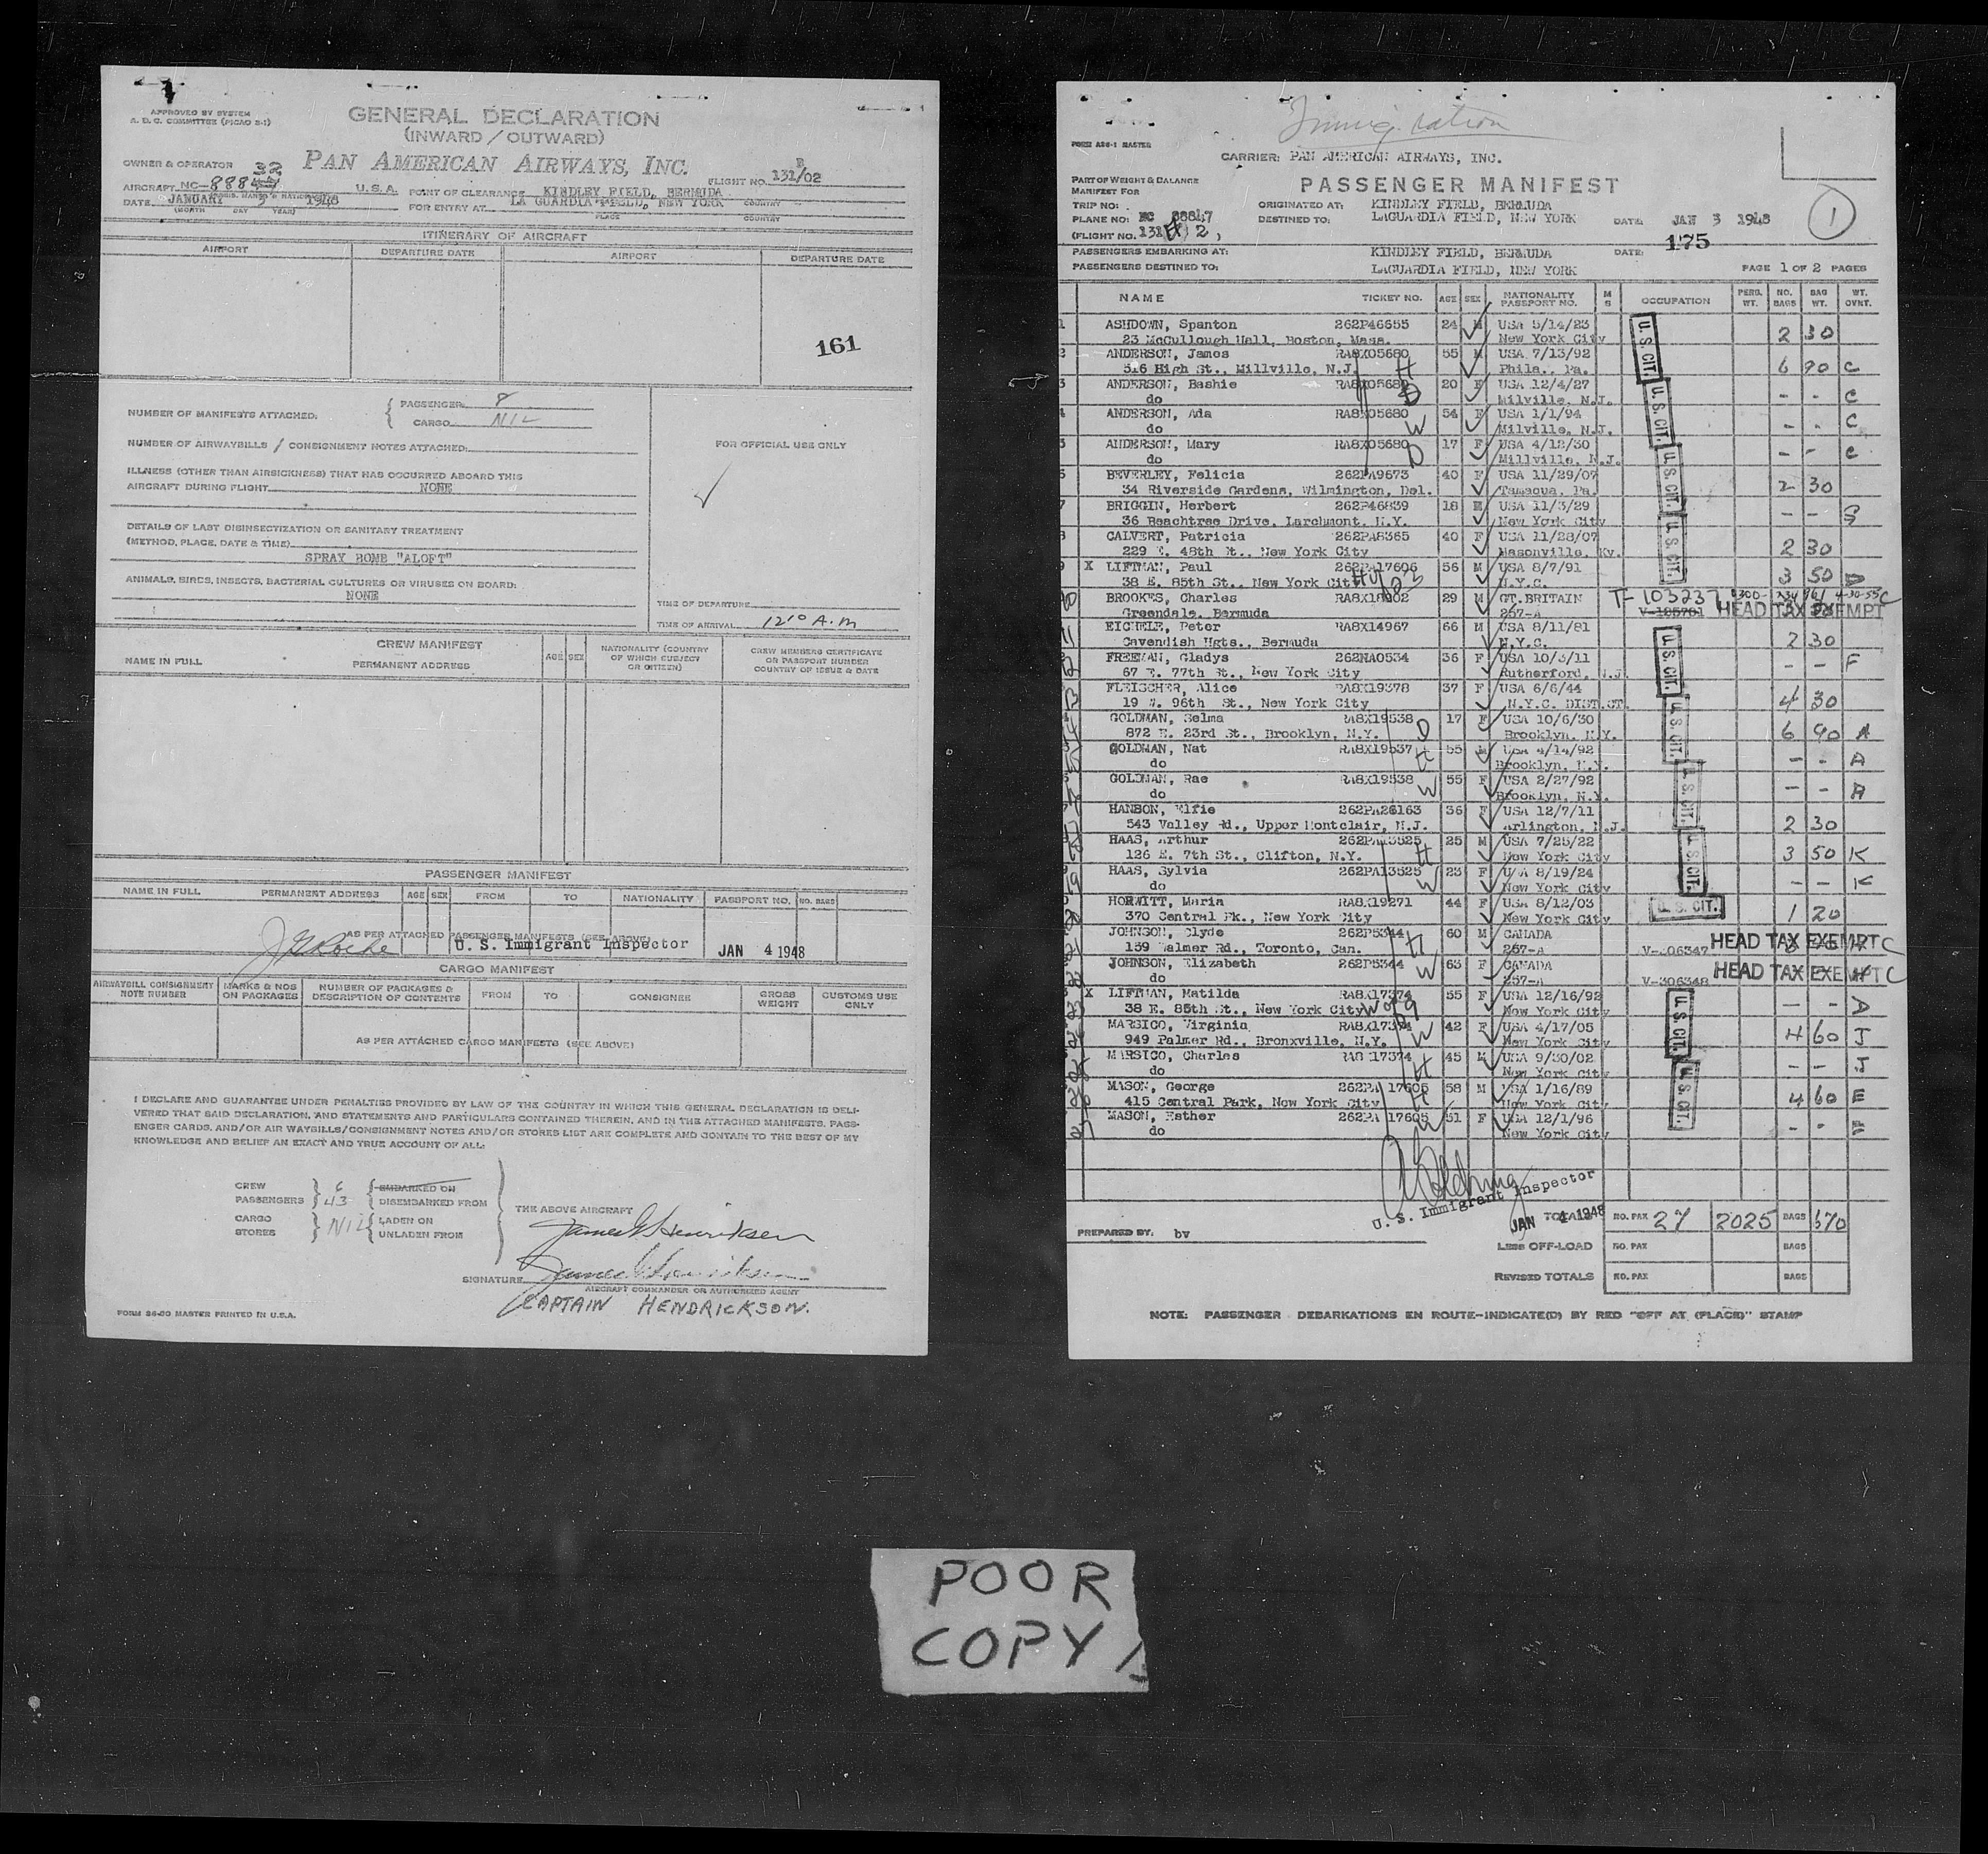 APPROVED BY SYSTEM
A. D. C. COMMITTEE (PICAO 2-1)
GENERAL DECLARATION
(INWARD / OUTWARD)
OWNER & OPERATOR PAN AMERICAN AIRWAYS, INC.
FLIGHT NO. 131/02
AIRCRAFT NC-888 32 U.S.A. POINT OF CLEARANCE KINDLEY FIELD, BERMUDA
DATE JANUARY 3 1948 FOR ENTRY AT LA GUARDIA FIELD, NEW YORK
(MONTH DAY YEAR) PLACE COUNTRY
ITINERARY OF AIRCRAFT
AIRPORT DEPARTURE DATE AIRPORT DEPARTURE DATE
161
NUMBER OF MANIFESTS ATTACHED: PASSENGER 8
CARGO NIL
NUMBER OF AIRWAYBILLS / CONSIGNMENT NOTES ATTACHED:
FOR OFFICIAL USE ONLY
ILLNESS (OTHER THAN AIRSICKNESS) THAT HAS OCCURRED ABOARD THIS
AIRCRAFT DURING FLIGHT NONE
DETAILS OF LAST DISINSECTIZATION OR SANITARY TREATMENT
(METHOD, PLACE, DATE & TIME)
SPRAY BOMB "ALOFT"
ANIMALS, BIRDS, INSECTS, BACTERIAL CULTURES OR VIRUSES ON BOARD:
NONE
TIME OF DEPARTURE
TIME OF ARRIVAL 1210 A.M
CREW MANIFEST
NAME IN FULL PERMANENT ADDRESS AGE SEX NATIONALITY (COUNTRY OF WHICH SUBJECT OR CITIZEN) CREW MEMBERS CERTIFICATE OR PASSPORT NUMBER COUNTRY OF ISSUE & DATE
PASSENGER MANIFEST
NAME IN FULL PERMANENT ADDRESS AGE SEX FROM TO NATIONALITY PASSPORT NO. NO. BAGS
AS PER ATTACHED PASSENGER MANIFESTS (SEE ABOVE)
U. S. Immigrant Inspector JAN 4 1948
CARGO MANIFEST
AIRWAYBILL CONSIGNMENT NOTE NUMBER MARKS & NOS ON PACKAGES NUMBER OF PACKAGES & DESCRIPTION OF CONTENTS FROM TO CONSIGNEE GROSS WEIGHT CUSTOMS USE ONLY
AS PER ATTACHED CARGO MANIFESTS (SEE ABOVE)
I DECLARE AND GUARANTEE UNDER PENALTIES PROVIDED BY LAW OF THE COUNTRY IN WHICH THIS GENERAL DECLARATION IS DELI-
VERED THAT SAID DECLARATION, AND STATEMENTS AND PARTICULARS CONTAINED THEREIN, AND IN THE ATTACHED MANIFESTS, PASS-
ENGER CARDS, AND/OR AIR WAYBILLS/CONSIGNMENT NOTES AND/OR STORES LIST ARE COMPLETE AND CONTAIN TO THE BEST OF MY
KNOWLEDGE AND BELIEF AN EXACT AND TRUE ACCOUNT OF ALL:
CREW 6 EMBARKED ON
PASSENGERS 43 DISEMBARKED FROM
THE ABOVE AIRCRAFT
CARGO NIL LADEN ON
STORES UNLADEN FROM
SIGNATURE
AIRCRAFT COMMANDER OR AUTHORIZED AGENT
CAPTAIN HENDRICKSON.
FORM 86-20 MASTER PRINTED IN U.S.A.
Immigration
CARRIER: PAN AMERICAN AIRWAYS, INC.
PART OF WEIGHT & BALANCE
MANIFEST FOR
PASSENGER MANIFEST
TRIP NO: ORIGINATED AT: KINDLEY FIELD, BERMUDA
PLANE NO: NC 88847 DESTINED TO: LAGUARDIA FIELD, NEW YORK DATE: JAN 3 1948
1
(FLIGHT NO. 131 2 )
175
PASSENGERS EMBARKING AT: KINDLEY FIELD, BERMUDA DATE:
PASSENGERS DESTINED TO: LAGUARDIA FIELD, NEW YORK PAGE 1 OF 2 PAGES
NAME TICKET NO. AGE SEX NATIONALITY PASSPORT NO. M S OCCUPATION PERS. WT. NO. BAGS BAG WT. WT. OVNT.
1 ASHDOWN, Spanton 262P46655 24 M USA 5/14/23
23 McCullough Hall, Boston, Mass. New York City 2 30
2 ANDERSON, James RA8X05680 55 M USA 7/13/92
516 High St., Millville, N.J. H Phila., Pa. 6 90 C
3 ANDERSON, Bashie RA8X05682 20 F USA 12/4/27
do D Milville, N.J. - - C
4 ANDERSON, Ada RA8X05680 54 F USA 1/1/94
do W Milville, N.J. - - C
5 ANDERSON, Mary RA8X05680 17 F USA 4/12/30
do D Millville, N.J. - - C
6 BEVERLEY, Felicia 262PA9673 40 F USA 11/29/07
34 Riverside Gardens, Wilmington, Del. Tamaqua, Pa. 2 30
7 BRIGGIN, Herbert 262P46839 18 M USA 11/3/29
36 Beachtree Drive, Larchmont, N.Y. New York City - - G
8 CALVERT, Patricia 262PA8365 40 F USA 11/28/07
229 E. 48th St., New York City Masonville, Ky. 2 30
9 X LIFTMAN, Paul 262PA17606 56 M USA 8/7/91
38 E. 85th St., New York City N.Y.C. 3 50 D
10 BROOKES, Charles RA8X18902 29 M GT.BRITAIN T-103237
Greendale, Bermuda 257-A HEAD TAX EXEMPT
11 EICHELE, Peter RA8X14967 66 M USA 8/11/81
Cavendish Hgts., Bermuda N.Y.C. 2 30
12 FREEMAN, Gladys 262NA0534 36 F USA 10/3/11
67 E. 77th St., New York City Rutherford, N.J. - - F
13 FLEISCHER, Alice RA8X19378 37 F USA 6/6/44
19 W. 96th St., New York City N.Y.C. DIST.CT. 4 30
14 GOLDMAN, Selma RA8X19538 17 F USA 10/6/30
872 E. 23rd St., Brooklyn, N.Y. D Brooklyn, N.Y. 6 90 A
15 GOLDMAN, Nat RA8X19537 55 M USA 4/14/92
do H Brooklyn, N.Y. - - A
16 GOLDMAN, Rae RA8X19538 55 F USA 2/27/92
do W Brooklyn, N.Y. - - A
17 HANSON, Elfie 262PA26163 36 F USA 12/7/11
543 Valley Rd., Upper Montclair, N.J. Arlington, N.J. 2 30
18 HAAS, Arthur 262PA13525 25 M USA 7/25/22
126 E. 7th St., Clifton, N.Y. H New York City 3 50 K
19 HAAS, Sylvia 262PA13525 23 F USA 8/19/24
do W New York City - - K
20 HORWITT, Maria RA8X19271 44 F USA 8/12/03
370 Central Pk., New York City New York City U. S. CIT. 1 20
21 JOHNSON, Clyde 262P5344 60 M CANADA
159 Walmer Rd., Toronto, Can. H 257-A V-306347 HEAD TAX EXEMPT C
22 JOHNSON, Elizabeth 262P5344 63 F CANADA
do W 257-A V-306348 HEAD TAX EXEMPT C
23 X LIFTMAN, Matilda RA8X17374 55 F USA 12/16/92
38 E. 85th St., New York City New York City - - D
24 MARSICO, Virginia RA8X17374 42 F USA 4/17/05
949 Palmer Rd., Bronxville, N.Y. W New York City 4 60 J
25 MARSICO, Charles RA8X17374 45 M USA 9/30/02
do H New York City - - J
26 MASON, George 262PA 17605 58 M USA 1/16/89
415 Central Park, New York City H New York City 4 60 E
27 MASON, Esther 262PA 17605 51 F USA 12/1/96
do W New York City - - E
U. S. CIT.
U. S. Immigrant Inspector
JAN 4 1948
TOTALS NO. PAX 27 2025 BAGS 670
PREPARED BY: bv
LESS OFF-LOAD NO. PAX BAGS
REVISED TOTALS NO. PAX BAGS
NOTE: PASSENGER DEBARKATIONS EN ROUTE-INDICATE(D) BY RED "OFF AT (PLACE)" STAMP
POOR
COPY